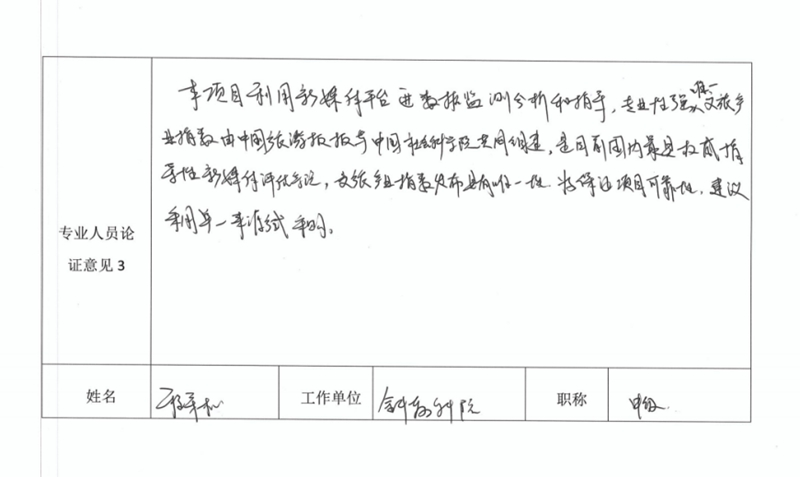 本项目利用新媒体平台进数据监测分析和指导，专业性强，文旅产
唯一
业指数由中国旅游报报与中国社会科学院共同组建，是目前国内最具权威指
导性新媒体评估方法，文旅产业指数发布具有唯一性。为保证项目可靠性，建议
采用单一来源式采购。
专业人员论
证意见 3
姓名
工作单位
科院
职称
中级